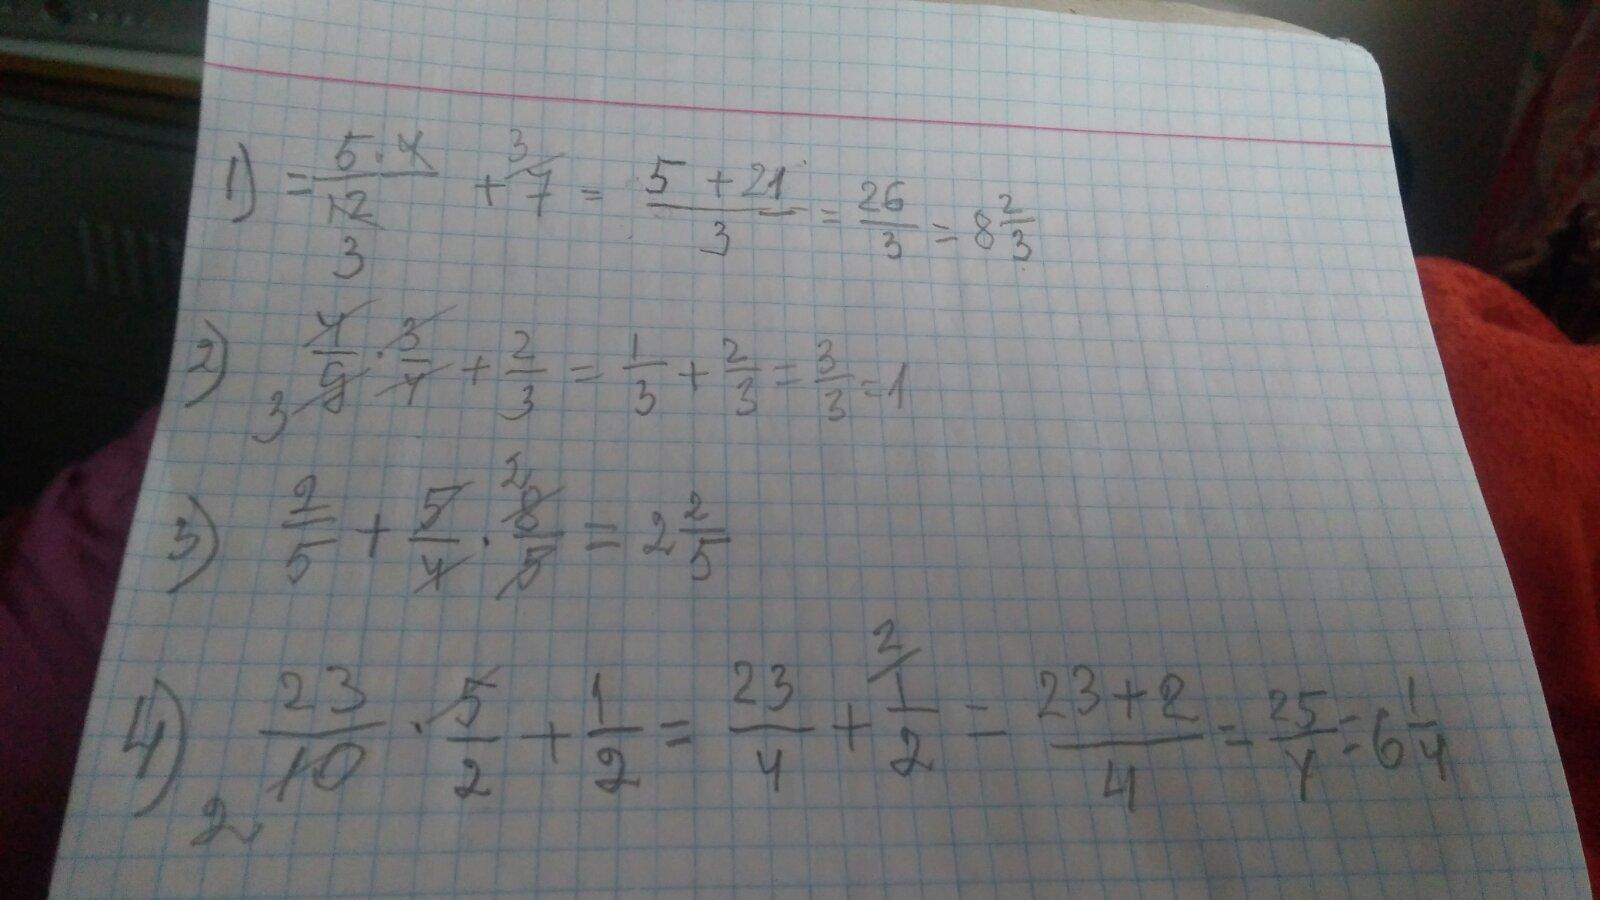 1) = 5·4/12 3 + 3/7 = 5+21/3 = 26/3 = 8 2/3
2) 3 4/9 · 3/4 + 2/3 = 1/3 + 2/3 = 3/3 = 1
3) 2/5 + 5/4 · 2 8/5 = 2 2/5
4) 2 23/10 · 5/2 + 1/2 = 23/4 + 2/ 1/2 = 23+2/4 = 25/4 = 6 1/4